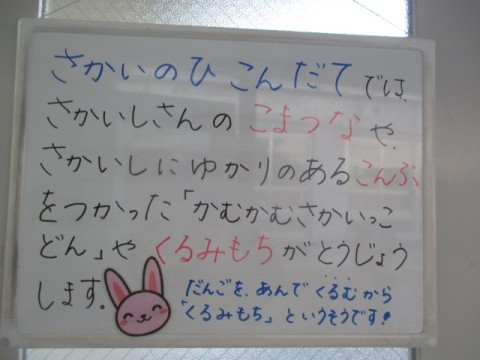 さかいのひ こんだて では、
さかいしさんの こまつな や、
さかいしに ゆかりのある こんぶ
をつかった「かむかむさかいっこ
どん」や くるみもち がとうじょう
します。
だんごを、あんで くるむ から
「くるみもち」というそうです！